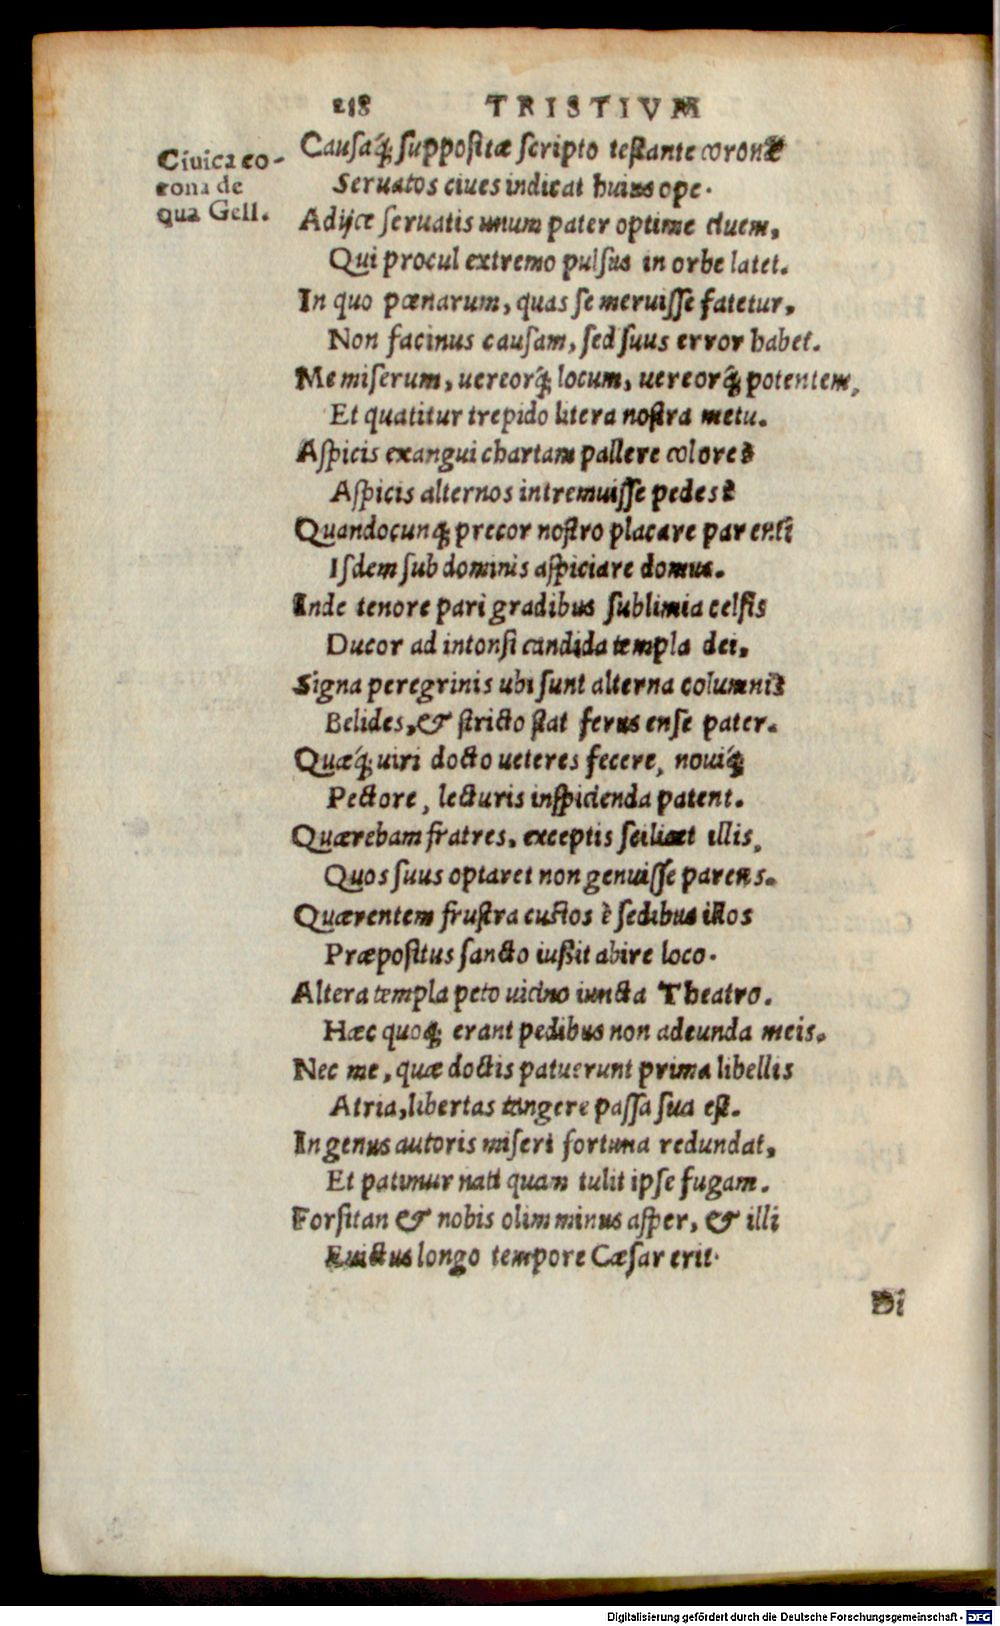 218 TRISTIVM
Ciuica co-
rona de
qua Gell.
Causaq́; suppositæ scripto testante coronæ
Seruatos ciues indicat huius ope.
Adijce seruatis unum pater optime ciuem,
Qui procul extremo pulsus in orbe latet.
In quo pœnarum, quas se meruisse fatetur,
Non facinus causam, sed suus error habet.
Me miserum, uereorq́; locum, uereorq́; potentem,
Et quatitur trepido litera nostra metu.
Aspicis exangui chartam pallere colore?
Aspicis alternos intremuisse pedes?
Quandocunq; precor nostro placare parenti
Isdem sub dominis aspiciare domus.
Inde tenore pari gradibus sublimia celsis
Ducor ad intonsi candida templa dei,
Signa peregrinis ubi sunt alterna columnis
Belides, & stricto stat ferus ense pater.
Quæq́; uiri docto ueteres fecere, nouiq́;
Pectore, lecturis inspicienda patent.
Quærebam fratres, exceptis scilicet illis,
Quos suus optaret non genuisse parens.
Quærentem frustra custos è sedibus illos
Præpositus sancto iussit abire loco.
Altera templa peto uicino iuncta Theatro.
Hæc quoq; erant pedibus non adeunda meis.
Nec me, quæ doctis patuerunt prima libellis
Atria, libertas tangere passa sua est.
In genus autoris miseri fortuna redundat,
Et patimur nati quam tulit ipse fugam.
Forsitan & nobis olim minus asper, & illi
Euictus longo tempore Cæsar erit.
Di
Digitalisierung gefördert durch die Deutsche Forschungsgemeinschaft - DFG